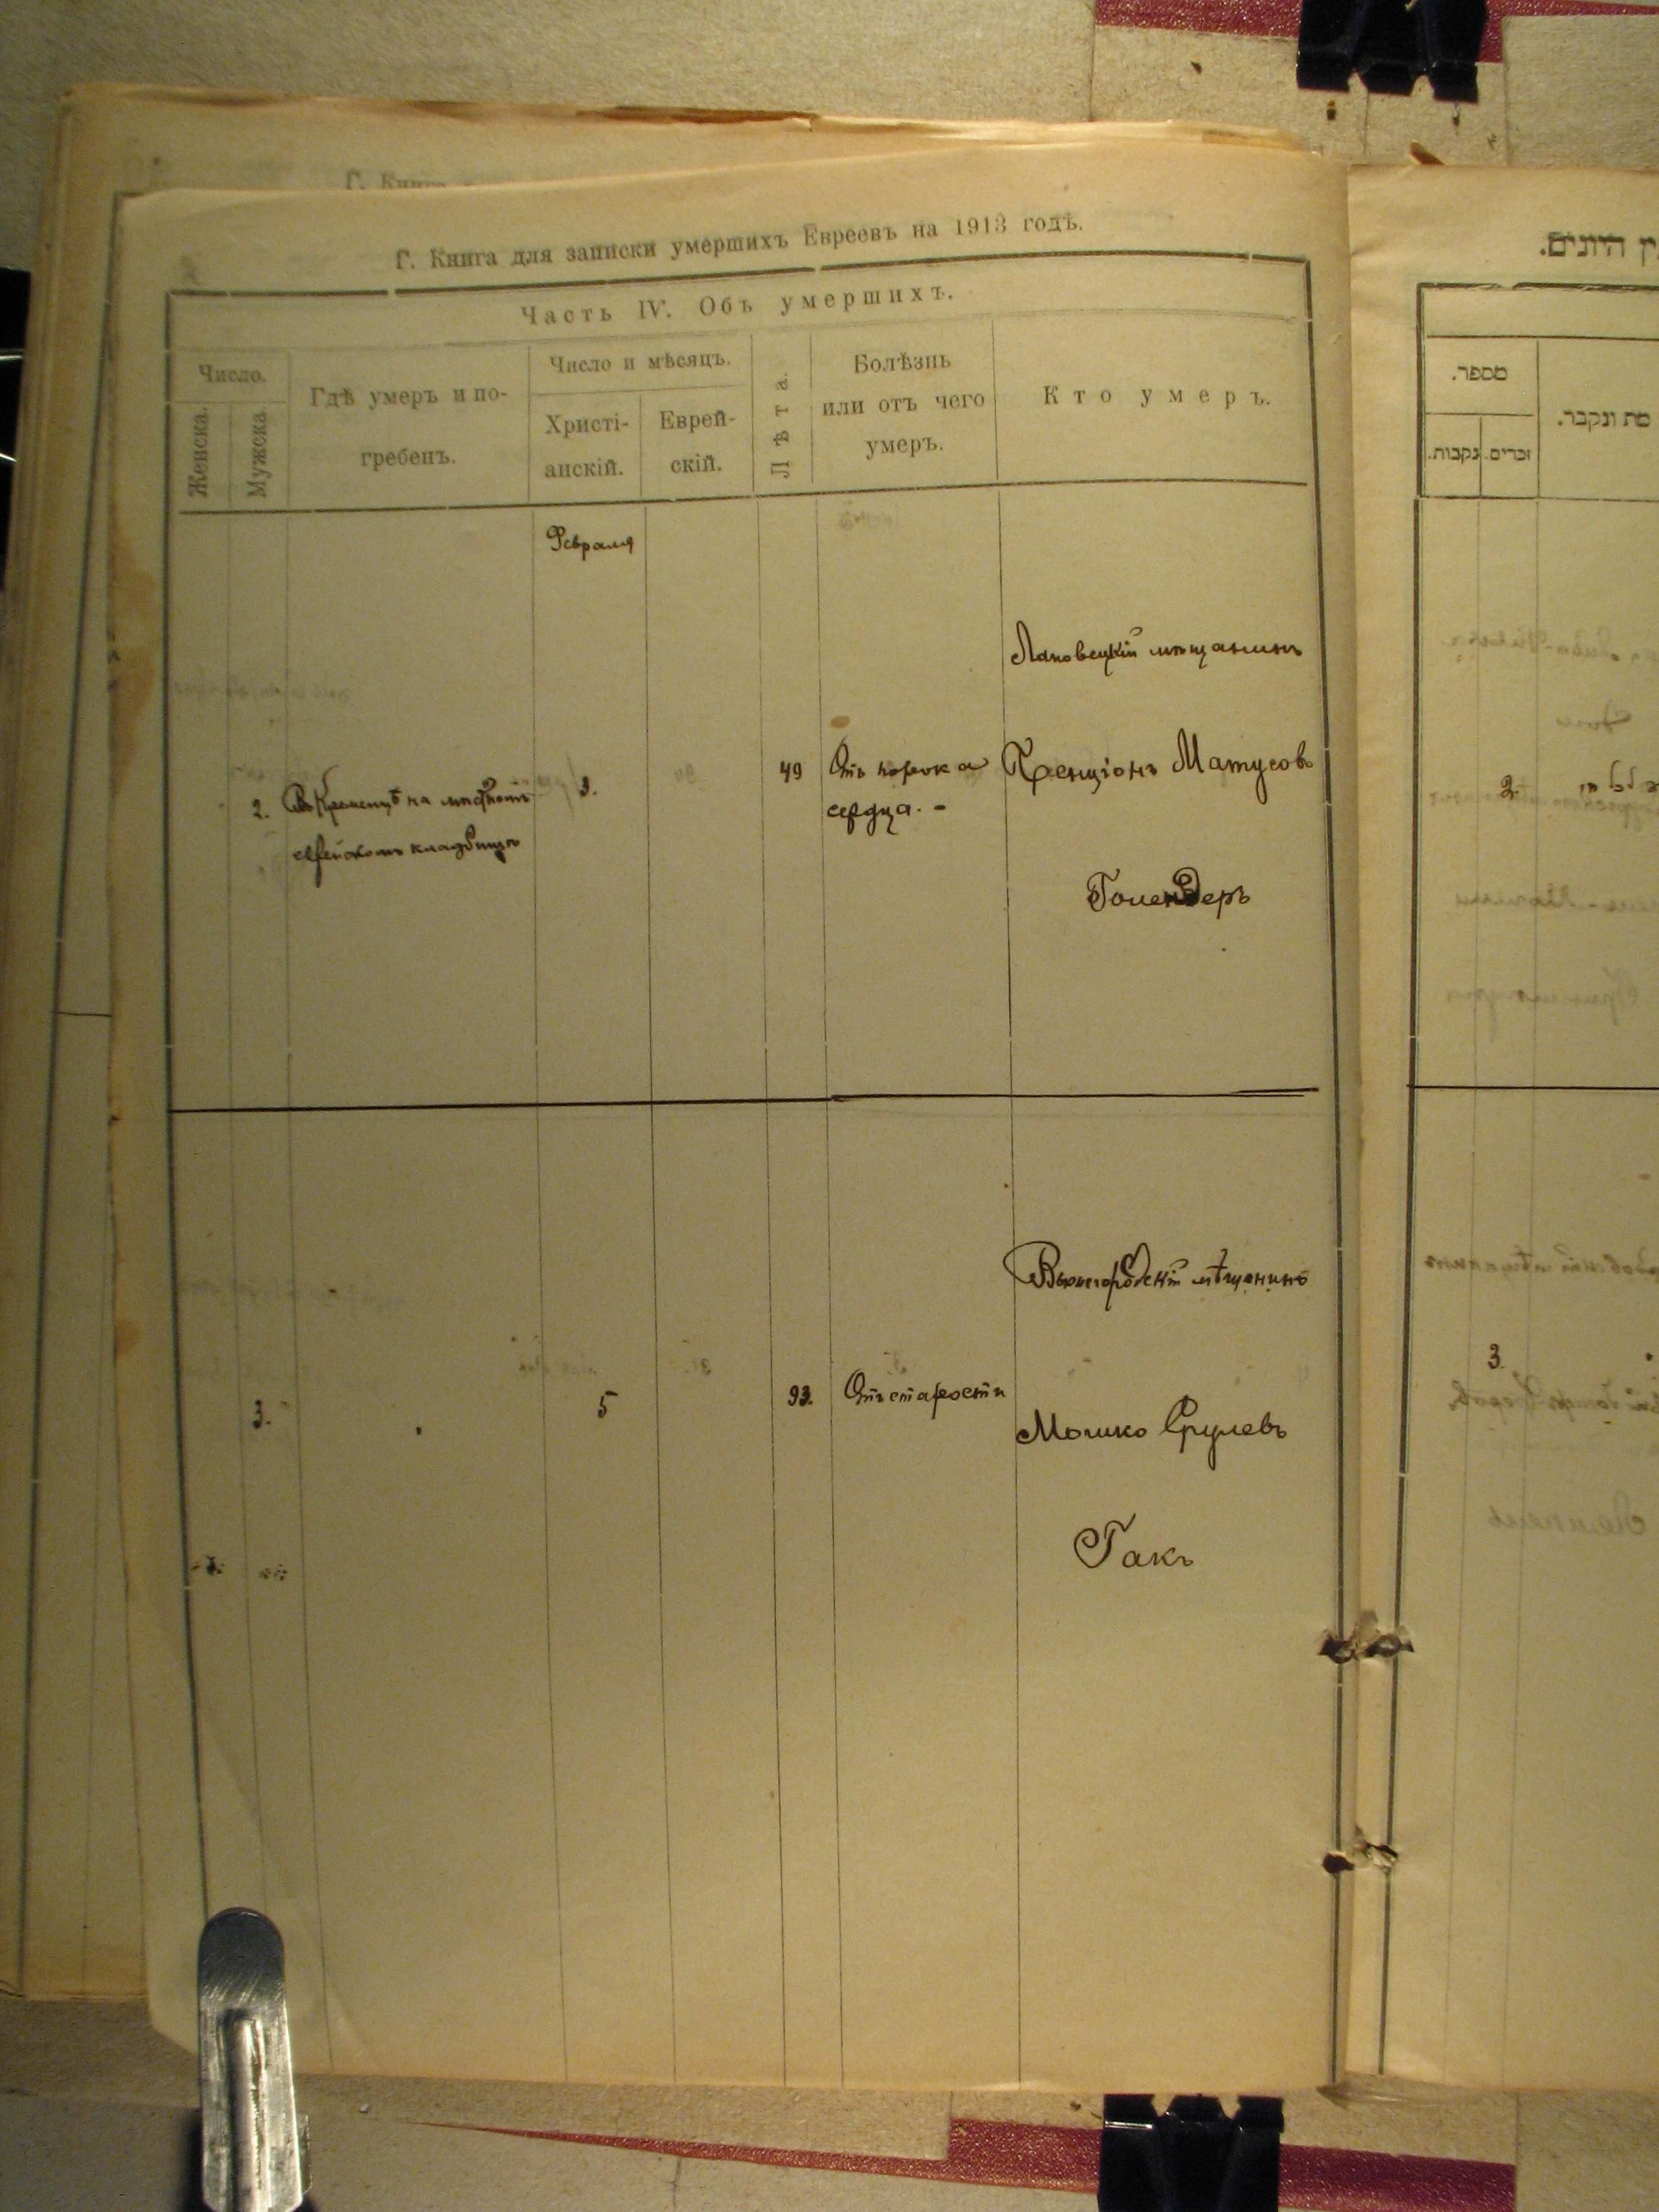 Г. Книга
Г. Книга для записки умершихъ Евреевъ на 1913 годъ.
Часть IV. Объ умершихъ.
Число.
Женска.
Мужска.
Гдѣ умеръ и по-
гребенъ.
Число и мѣсяцъ.
Христі-
анскій.
Еврей-
скій.
Лѣта.
Болѣзнь
или отъ чего
умеръ.
Кто умеръ.
Февраля
Лановецкій мѣщанинъ
2.
Въ Кременцѣ на мѣстномъ
еврейскомъ кладбищѣ
3.
49
Отъ порока
сердца. -
Бенціонъ Матусовъ
Голендеръ
Вышгородскій мѣщанинъ
3.
5
93.
Отъ старости
Мошко Срулевъ
Гакъ
היונים.
מספר.
זכרים.
נקבות.
מת ונקבר.
2
3.